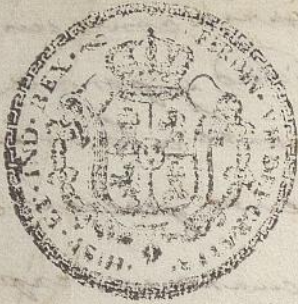 FERDIN · DEI GRATIA · HISP · ET · IND · REX ·